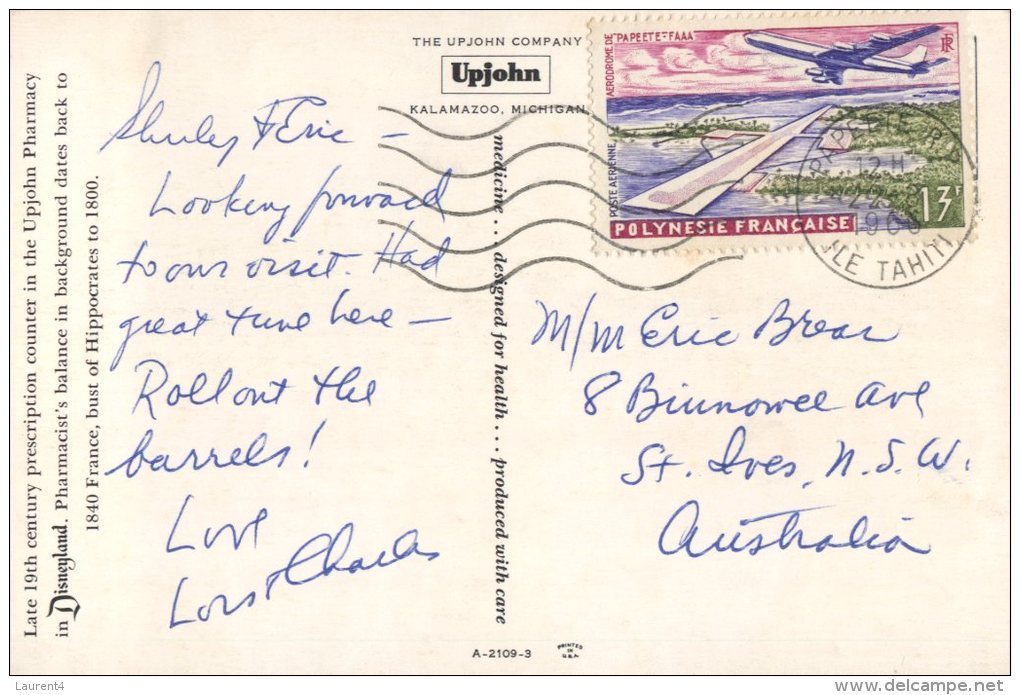 Late 19th century prescription counter in the Upjohn Pharmacy
in Disneyland. Pharmacist's balance in background dates back to
1840 France, bust of Hippocrates to 1800.
Shirley & Eric —
Looking forward
to our visit. Had
great time here —
Roll out the
barrels!
Love
Lois & Charles
THE UPJOHN COMPANY
Upjohn
KALAMAZOO, MICHIGAN
medicine . . . designed for health . . . produced with care
A-2109-3
PRINTED
IN
U.S.A.
AÉRODROME DE PAPEETE-FAAA
RF
POSTE AÉRIENNE
13F
POLYNÉSIE FRANÇAISE
PAPEETE R.P.
12 H
196
ILE TAHITI
M/M Eric Brear
8 Binnowee Ave
St. Ives, N.S.W.
Australia
Laurent4
www.delcampe.net